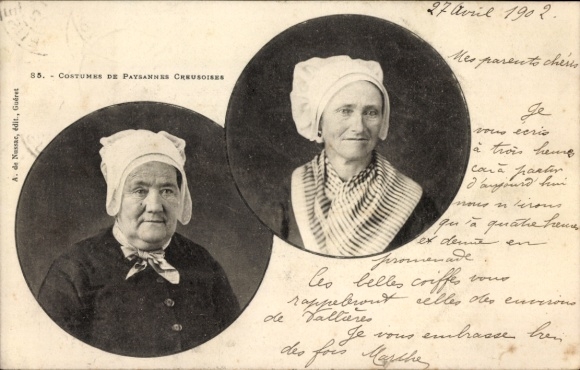 27 Avril 1902.
Mes parents chéris
35. - COSTUMES DE PAYSANNES CREUSOISES
A. de Nussac, édit., Guéret
Je
vous écris
à trois heures
car à partir
d'aujourd'hui
nous n'irons
qu'à quatre heures
et demie en
promenade
Ces belles coiffes vous
rappeleront celles des environs
de Vallières
Je vous embrasse bien
des fois Marthe